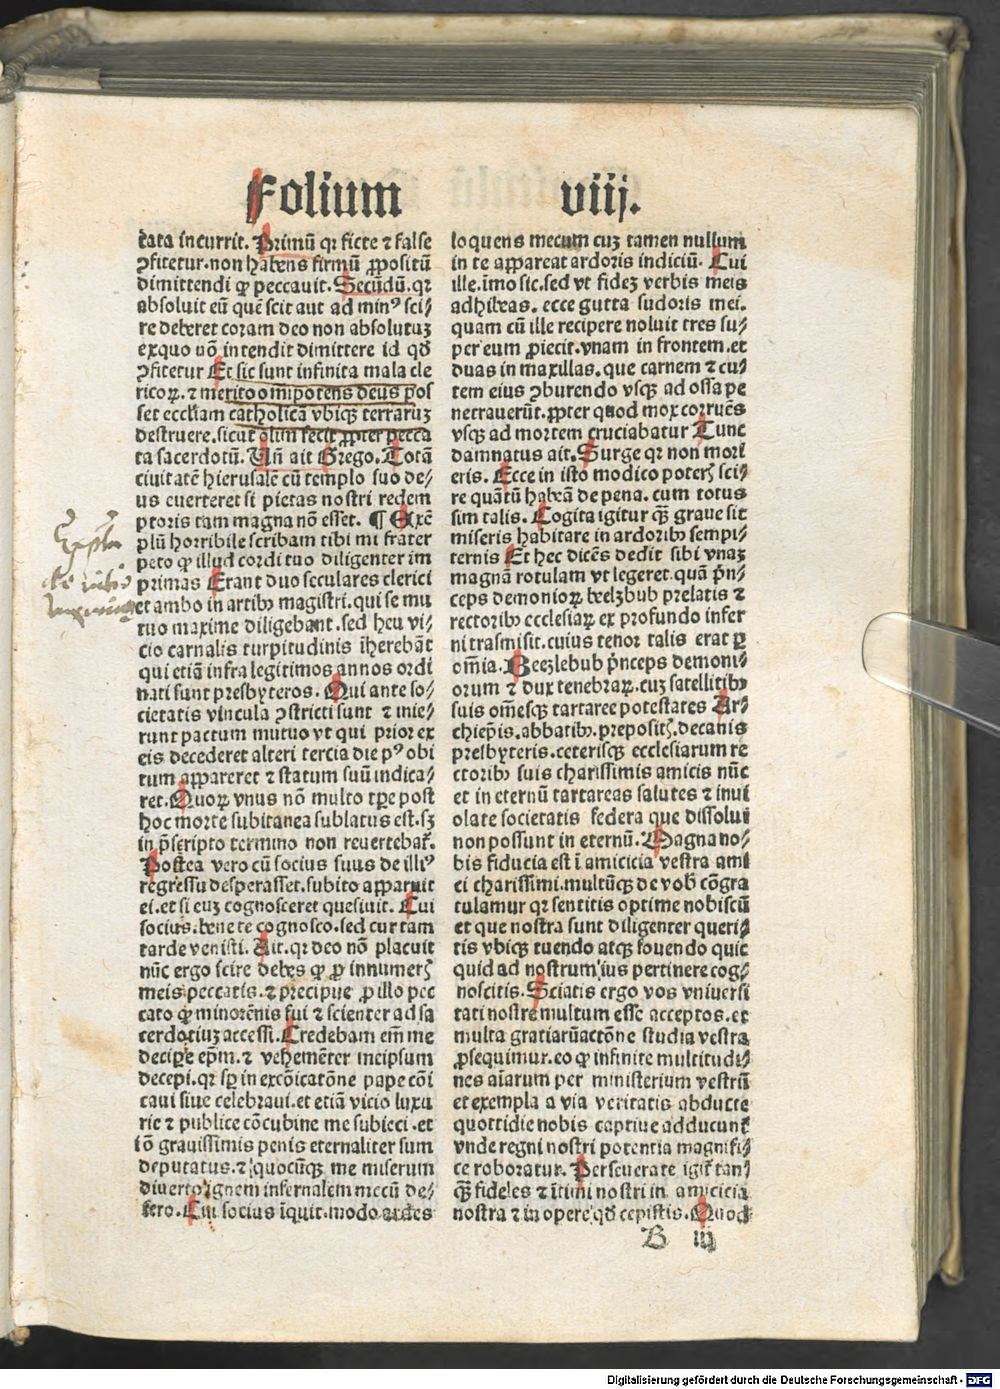 Folium viij.
cata incurrit. Primū qr ficte ⁊ false
ꝯfitetur. non habens firmū ꝓpositū
dimittendi qꝫ peccauit. Secūdū. qr
absoluit eū quē scit aut ad minꝰ sci⸗
re deberet coram deo non absolutuꝫ
exquo nō intendit dimittere id qḋ
ꝯfitetur Et sic sunt infinita mala cle
ricoꝝ. ⁊ merito om̄ipotens deus pos
set eccl̄iam catholicā vbiqꝫ terraruꝫ
destruere. sicut olim fecit ꝓpter pecca
ta sacerdotū. Vn̄ ait Grego. Totā
ciuitatē hierusalē cū templo suo de⸗
us euerteret si pietas nostri redem
ptoris tam magna nō esset. ¶ Exē
plū horribile scribam tibi mi frater
peto qꝫ illud cordi tuo diligenter im
primas Erant duo seculares clerici
et ambo in artibꝫ magistri. qui se mu
tuo maxime diligebant. sed heu vi⸗
cio carnalis turpitudinis īherebāt
qui etiā infra legitimos annos ordi
nati sunt presbyteros. Qui ante so⸗
cietatis vincula ꝯstricti sunt ⁊ inie⸗
runt pactum mutuo vt qui prior ex
eis decederet alteri tercia die pꝰ obi
tum appareret ⁊ statum suū indica⸗
ret. Quoꝝ vnus nō multo tꝑe post
hoc morte subitanea sublatus est. sꝫ
in p̄scripto termino non reuertebat̄.
Postea vero cū socius suus de illiꝰ
regressu desperasset. subito apparuit
ei. et si euꝫ cognosceret quesiuit. Cui
socius. bene te cognosco. sed cur tam
tarde venisti. Ait. qr deo nō placuit
nūc ergo scire debes qꝫ ꝑ innumeris
meis peccatis. ⁊ precipue ꝓ illo pec
cato qꝫ minorēnis fui ⁊ scienter ad sa
cerdotiuꝫ accessi. Credebam em̄ me
decipe ep̄m. ⁊ vehemēter meipsum
decepi. qr sp̄ in excōicatōne pape cōi
caui siue celebraui. et etiā vicio luxu
rie ⁊ publice cōcubine me subieci. et
iō grauissimis penis eternaliter sum
deputatus. ⁊ quocūqꝫ me miserum
diuerto ignem infernalem mecū de⸗
fero. Cui socius īquit. modo ardes
loquens mecum cuꝫ tamen nullum
in te appareat ardoris indiciū. Cui
ille. imo sic. sed vt fideꝫ verbis meis
adhibeas. ecce gutta sudoris mei.
quam cū ille recipere noluit tres su⸗
per eum ꝓiecit. vnam in frontem. et
duas in maxillas. que carnem ⁊ cu⸗
tem eius ꝯburendo vsqꝫ ad ossa pe
netrauerūt. ꝓpter quod mox corruēs
vsqꝫ ad mortem cruciabatur Tunc
damnatus ait. Surge qr non mori
eris. Ecce in isto modico poteris sci⸗
re quātū habeā de pena. cum totus
sim talis. Cogita igitur qꝫ graue sit
miseris habitare in ardoribꝫ sempi⸗
ternis Et hec dicēs dedit sibi vnaꝫ
magnā rotulam vt legeret. quā p̄n⸗
ceps demonioꝝ beelzbub prelatis ⁊
rectoribꝫ ecclesiaꝝ ex profundo infer
ni trāsmisit. cuius tenor talis erat ꝑ
om̄ia. Beezlebub p̄nceps demoni⸗
orum ⁊ dux tenebraꝝ. cuꝫ satellitibꝫ
suis om̄esqꝫ tartaree potestates Ar⸗
chiep̄is. abbatibꝫ. prepositis. decanis
presbyteris. ceterisqꝫ ecclesiarum re
ctoribꝫ suis charissimis amicis nūc
et in eternū tartareas salutes ⁊ inui
olate societatis federa que dissolui
non possunt in eternū. Magna no⸗
bis fiducia est ī amicicia vestra ami
ci charissimi. multūqꝫ de vob̄ cōgra
tulamur qr sentitis optime nobiscū
et que nostra sunt diligenter queri⸗
tis vbiqꝫ tuendo atqꝫ fouendo quic
quid ad nostrum ius pertinere cog⸗
noscitis. Sciatis ergo vos vniuersi
tati nostre multum esse acceptos. et
multa gratiarūactōne studia vestra
ꝓsequimur. eo qꝫ infinite multitudi⸗
nes aīarum per ministerium vestrū
et exempla a via veritatis abducte
quottidie nobis captiue adducunt̄
vnde regni nostri potentia magnifi⸗
ce roboratur. Perseuerate igit̄ tan⸗
qꝫ fideles ⁊ ītimi nostri in amicicia
nostra ⁊ in opere qḋ cepistis. Quod
B iij
Digitalisierung gefördert durch die Deutsche Forschungsgemeinschaft - DFG